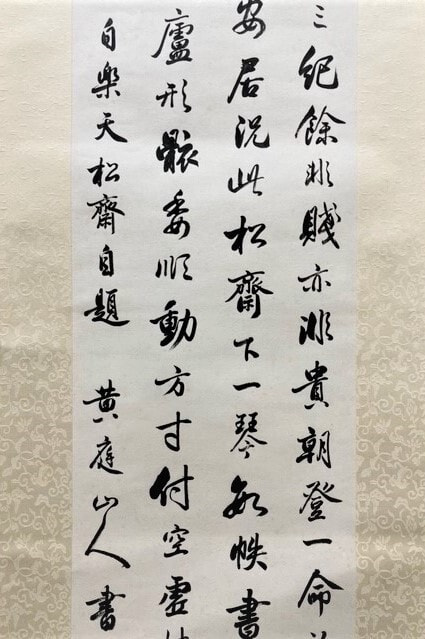 三紀餘非賤亦非貴朝登一命
安居況此松齋下一琴數帙書
廬形骸委順動方寸付空虛
白樂天松齋自題 黃庭山人書